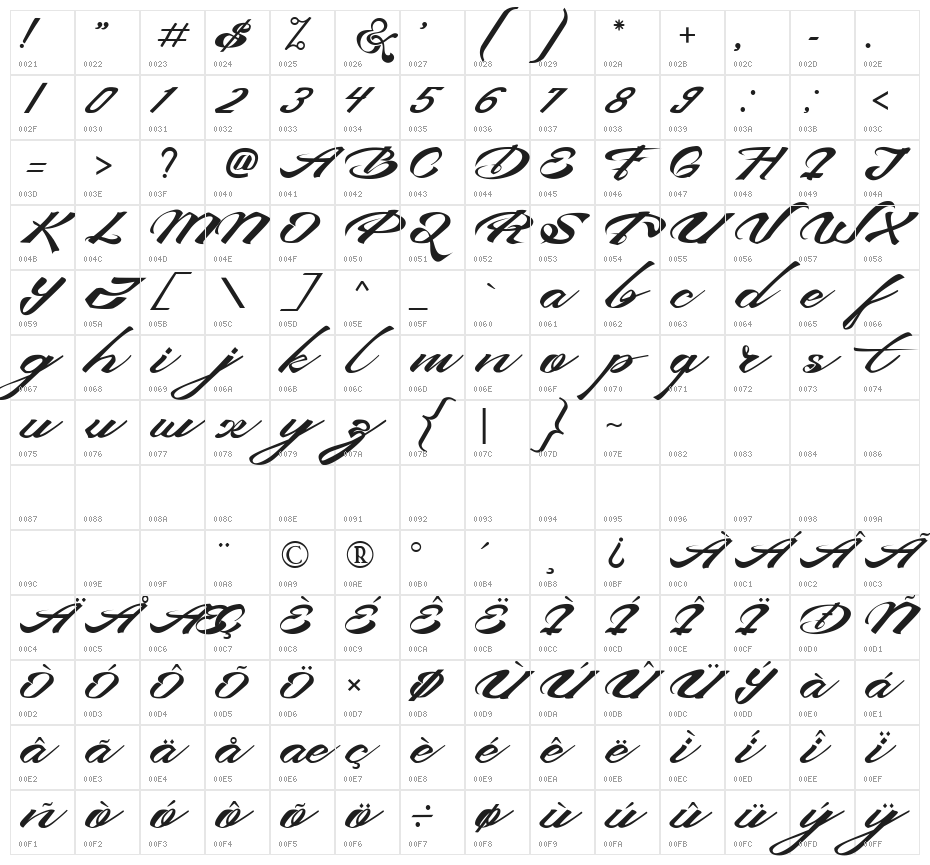 ! " # $ % & ' ( ) * + , - .
0021 0022 0023 0024 0025 0026 0027 0028 0029 002A 002B 002C 002D 002E
/ 0 1 2 3 4 5 6 7 8 9 : ; <
002F 0030 0031 0032 0033 0034 0035 0036 0037 0038 0039 003A 003B 003C
= > ? @ A B C D E F G H I J
003D 003E 003F 0040 0041 0042 0043 0044 0045 0046 0047 0048 0049 004A
K L M N O P Q R S T U V W X
004B 004C 004D 004E 004F 0050 0051 0052 0053 0054 0055 0056 0057 0058
Y Z [ \ ] ^ _ ` a b c d e f
0059 005A 005B 005C 005D 005E 005F 0060 0061 0062 0063 0064 0065 0066
g h i j k l m n o p q r s t
0067 0068 0069 006A 006B 006C 006D 006E 006F 0070 0071 0072 0073 0074
u v w x y z { | } ~
0075 0076 0077 0078 0079 007A 007B 007C 007D 007E 0082 0083 0084 0086
0087 0088 008A 008C 008E 0091 0092 0093 0094 0095 0096 0097 0098 009A
¨ © ® ° ´ ¸ ¿ À Á Â Ã
009C 009E 009F 00A8 00A9 00AE 00B0 00B4 00B8 00BF 00C0 00C1 00C2 00C3
Ä Å Æ Ç È É Ê Ë Ì Í Î Ï Ð Ñ
00C4 00C5 00C6 00C7 00C8 00C9 00CA 00CB 00CC 00CD 00CE 00CF 00D0 00D1
Ò Ó Ô Õ Ö × Ø Ù Ú Û Ü Ý à á
00D2 00D3 00D4 00D5 00D6 00D7 00D8 00D9 00DA 00DB 00DC 00DD 00E0 00E1
â ã ä å æ ç è é ê ë ì í î ï
00E2 00E3 00E4 00E5 00E6 00E7 00E8 00E9 00EA 00EB 00EC 00ED 00EE 00EF
ñ ò ó ô õ ö ÷ ø ù ú û ü ý ÿ
00F1 00F2 00F3 00F4 00F5 00F6 00F7 00F8 00F9 00FA 00FB 00FC 00FD 00FF